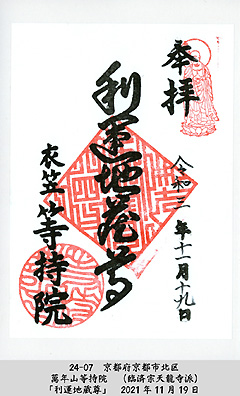 奉拝
令和三年十一月十九日
利運地蔵尊
衣笠 等持院
24-07 京都府京都市北区
萬年山等持院 (臨済宗天龍寺派)
「利運地蔵尊」 2021年11月19日